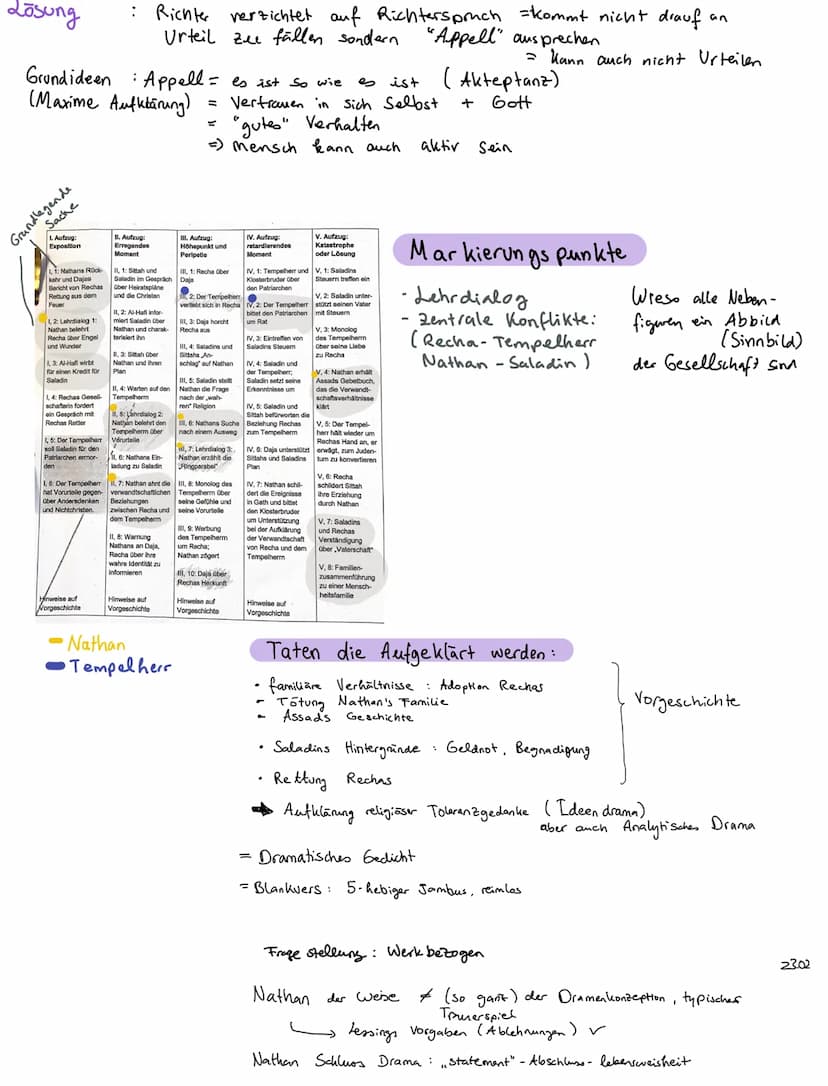 Lösung : Richter verzichtet auf Richterspruch = kommt nicht drauf an
Urteil zu fällen sondern "Appell" aussprechen
= kann auch nicht Urteilen
Grundideen : Appell = es ist so wie es ist (Akteptanz)
(Maxime Aufklärung) = Vertrauen in sich Selbst + Gott
= "gutes" Verhalten
=> mensch kann auch aktiv sein
Grundlegende
Sache
I. Aufzug:
Exposition
I, 1: Nathans Rück-
kehr und Dajas
Bericht von Rechas
Rettung aus dem
Feuer
I, 2: Lehrdialog 1:
Nathan belehrt
Recha über Engel
und Wunder
I, 3: Al-Hafi wirbt
für einen Kredit für
Saladin
I, 4: Rechas Gesell-
schafterin fordert
ein Gespräch mit
Rechas Retter
I, 5: Der Tempelherr
soll Saladin für den
Patriarchen ermor-
den
I, 6: Der Tempelherr
hat Vorurteile gegen-
über Andersdenken
und Nichtchristen.
Hinweise auf
Vorgeschichte
II. Aufzug:
Erregendes
Moment
II, 1: Sittah und
Saladin im Gespräch
über Heiratspläne
und die Christen
II, 2: Al-Hafi infor-
miert Saladin über
Nathan und charak-
terisiert ihn
II, 3: Sittah über
Nathan und ihren
Plan
II, 4: Warten auf den
Tempelherrn
II, 5: Lehrdialog 2:
Nathan belehrt den
Tempelherrn über
Vorurteile
II, 6: Nathans Ein-
ladung zu Saladin
II, 7: Nathan ahnt die
verwandtschaftlichen
Beziehungen
zwischen Recha und
dem Tempelherrn
II, 8: Warnung
Nathans an Daja,
Recha über ihre
wahre Identität zu
informieren
Hinweise auf
Vorgeschichte
III. Aufzug:
Höhepunkt und
Peripetie
III, 1: Recha über
Daja
III, 2: Der Tempelherr
verliebt sich in Recha
III, 3: Daja horcht
Recha aus
III, 4: Saladins und
Sittahs „An-
schlag" auf Nathan
III, 5: Saladin stellt
Nathan die Frage
nach der „wah-
ren" Religion
III, 6: Nathans Suche
nach einem Ausweg
III, 7: Lehrdialog 3:
Nathan erzählt die
„Ringparabel"
III, 8: Monolog des
Tempelherrn über
seine Gefühle und
seine Vorurteile
III, 9: Werbung
des Tempelherrn
um Recha;
Nathan zögert
III, 10: Daja über
Rechas Herkunft
Hinweise auf
Vorgeschichte
IV. Aufzug:
retardierendes
Moment
IV, 1: Tempelherr und
Klosterbruder über
den Patriarchen
IV, 2: Der Tempelherr
bittet den Patriarchen
um Rat
IV, 3: Eintreffen von
Saladins Steuern
IV, 4: Saladin und
der Tempelherr;
Saladin setzt seine
Erkenntnisse um
IV, 5: Saladin und
Sittah befürworten die
Beziehung Rechas
zum Tempelherrn
IV, 6: Daja unterstützt
Sittahs und Saladins
Plan
IV, 7: Nathan schil-
dert die Ereignisse
in Gath und bittet
den Klosterbruder
um Unterstützung
bei der Aufklärung
der Verwandtschaft
von Recha und dem
Tempelherrn
Hinweise auf
Vorgeschichte
V. Aufzug:
Katastrophe
oder Lösung
V, 1: Saladins
Steuern treffen ein
V, 2: Saladin unter-
stützt seinen Vater
mit Steuern
V, 3: Monolog
des Tempelherrn
über seine Liebe
zu Recha
V, 4: Nathan erhält
Assads Gebetbuch,
das die Verwandt-
schaftsverhältnisse
klärt
V, 5: Der Tempel-
herr hält wieder um
Rechas Hand an, er
erwägt, zum Juden-
tum zu konvertieren
V, 6: Recha
schildert Sittah
ihre Erziehung
durch Nathan
V, 7: Saladins
und Rechas
Verständigung
über „Vaterschaft"
V, 8: Familien-
zusammenführung
zu einer Mensch-
heitsfamilie
Markierungspunkte
- Lehrdialog
- Zentrale Konflikte:
(Recha - Tempelherr
Nathan - Saladin)
Wieso alle Neben-
figuren ein Abbild
(Sinnbild)
der Gesellschaft sind
- Nathan
- Tempelherr
Taten die Aufgeklärt werden:
• familiäre Verhältnisse : Adoption Rechas
- Tötung Nathan's Familie
- Assads Geschichte
• Saladins Hintergründe : Geldnot, Begnadigung
• Rettung Rechas
Vorgeschichte
➔ Aufklärung religiöser Toleranzgedanke (Ideendrama)
aber auch Analytisches Drama
= Dramatisches Gedicht
= Blankvers : 5-hebiger Jambus, reimlos
Frage stellung : Werkbezogen
2302
Nathan der Weise ≠ (so ganz) der Dramenkonzeption, typisches
Trauerspiel
↳ Lessings Vorgaben (Ablehnungen) ✓
Nathan Schluss Drama : „statement" - Abschluss - lebensweisheit